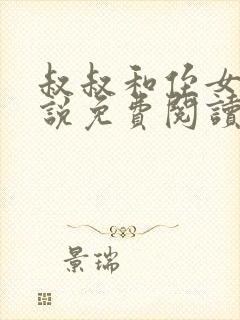 叔叔和侄女
說免費閱讀
景瑞